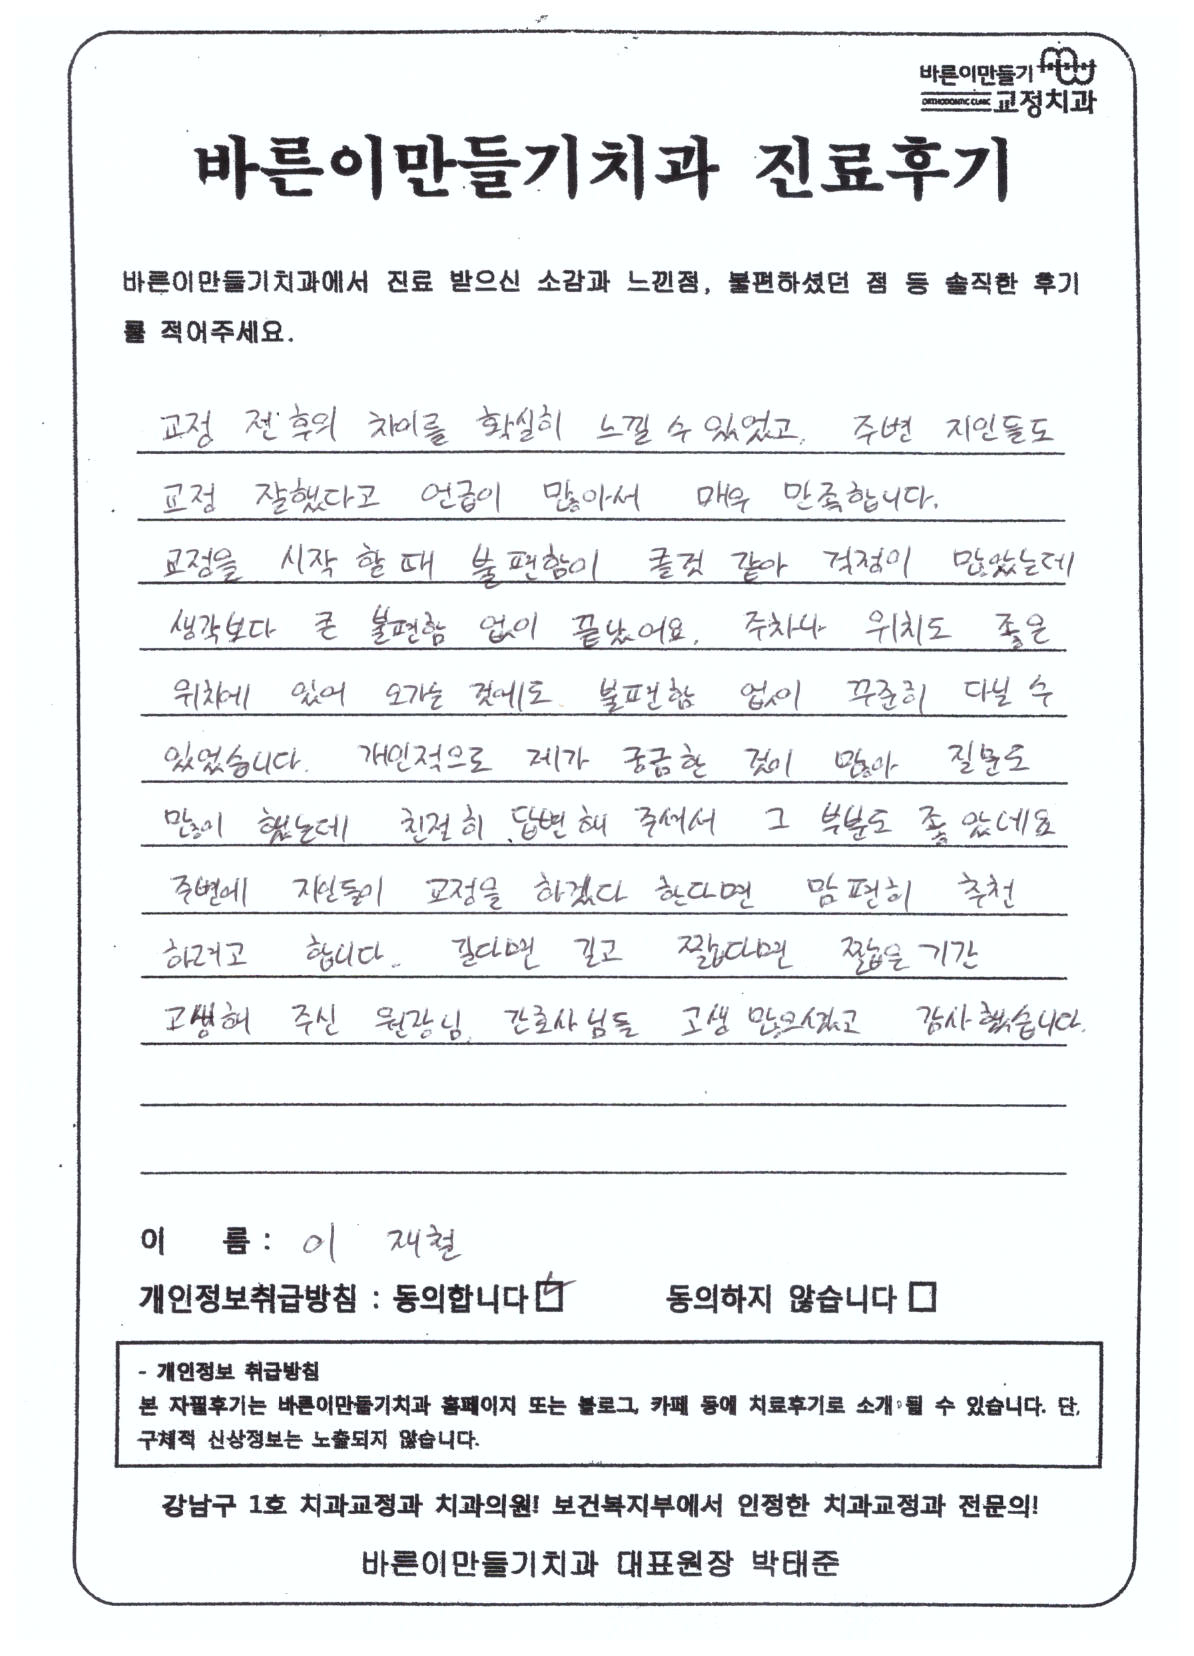 바른이만들기
ORTHODONTIC CLINIC 교정치과
바른이만들기치과 진료후기
바른이만들기치과에서 진료 받으신 소감과 느낀점, 불편하셨던 점 등 솔직한 후기
를 적어주세요.
교정 전·후의 차이를 확실히 느낄 수 있었고, 주변 지인들도
교정 잘했다고 언급이 많아서 매우 만족합니다.
교정을 시작 할 때 불편함이 클것 같아 걱정이 많았는데
생각보다 큰 불편함 없이 끝났어요. 주차나 위치도 좋은
위치에 있어 오가는 것에도 불편함 없이 꾸준히 다닐 수
있었습니다. 개인적으로 제가 궁금한 것이 많아 질문도
많이 했는데 친절히 답변해 주셔서 그 부분도 좋았네요
주변에 지인들이 교정을 하겠다 한다면 맘편히 추천
하려고 합니다.. 길다면 길고 짧다면 짧은 기간
고생해 주신 원장님, 간호사님들 고생 많으셨고 감사했습니다.
이 름 : 이 재철
개인정보취급방침 : 동의합니다 ☑ 동의하지 않습니다 □
- 개인정보 취급방침
본 자필후기는 바른이만들기치과 홈페이지 또는 블로그, 카페 등에 치료후기로 소개 될 수 있습니다. 단,
구체적 신상정보는 노출되지 않습니다.
강남구 1호 치과교정과 치과의원! 보건복지부에서 인정한 치과교정과 전문의!
바른이만들기치과 대표원장 박태준